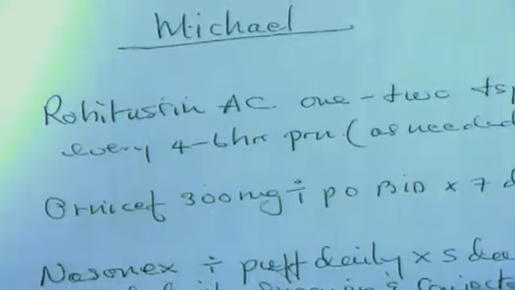 Michael
Robitussin AC one - two ts
every 4-6hr prn (as needed
Omnicef 300mg ÷ po BID x 7 d
Nasonex ÷ puff daily x 5 da